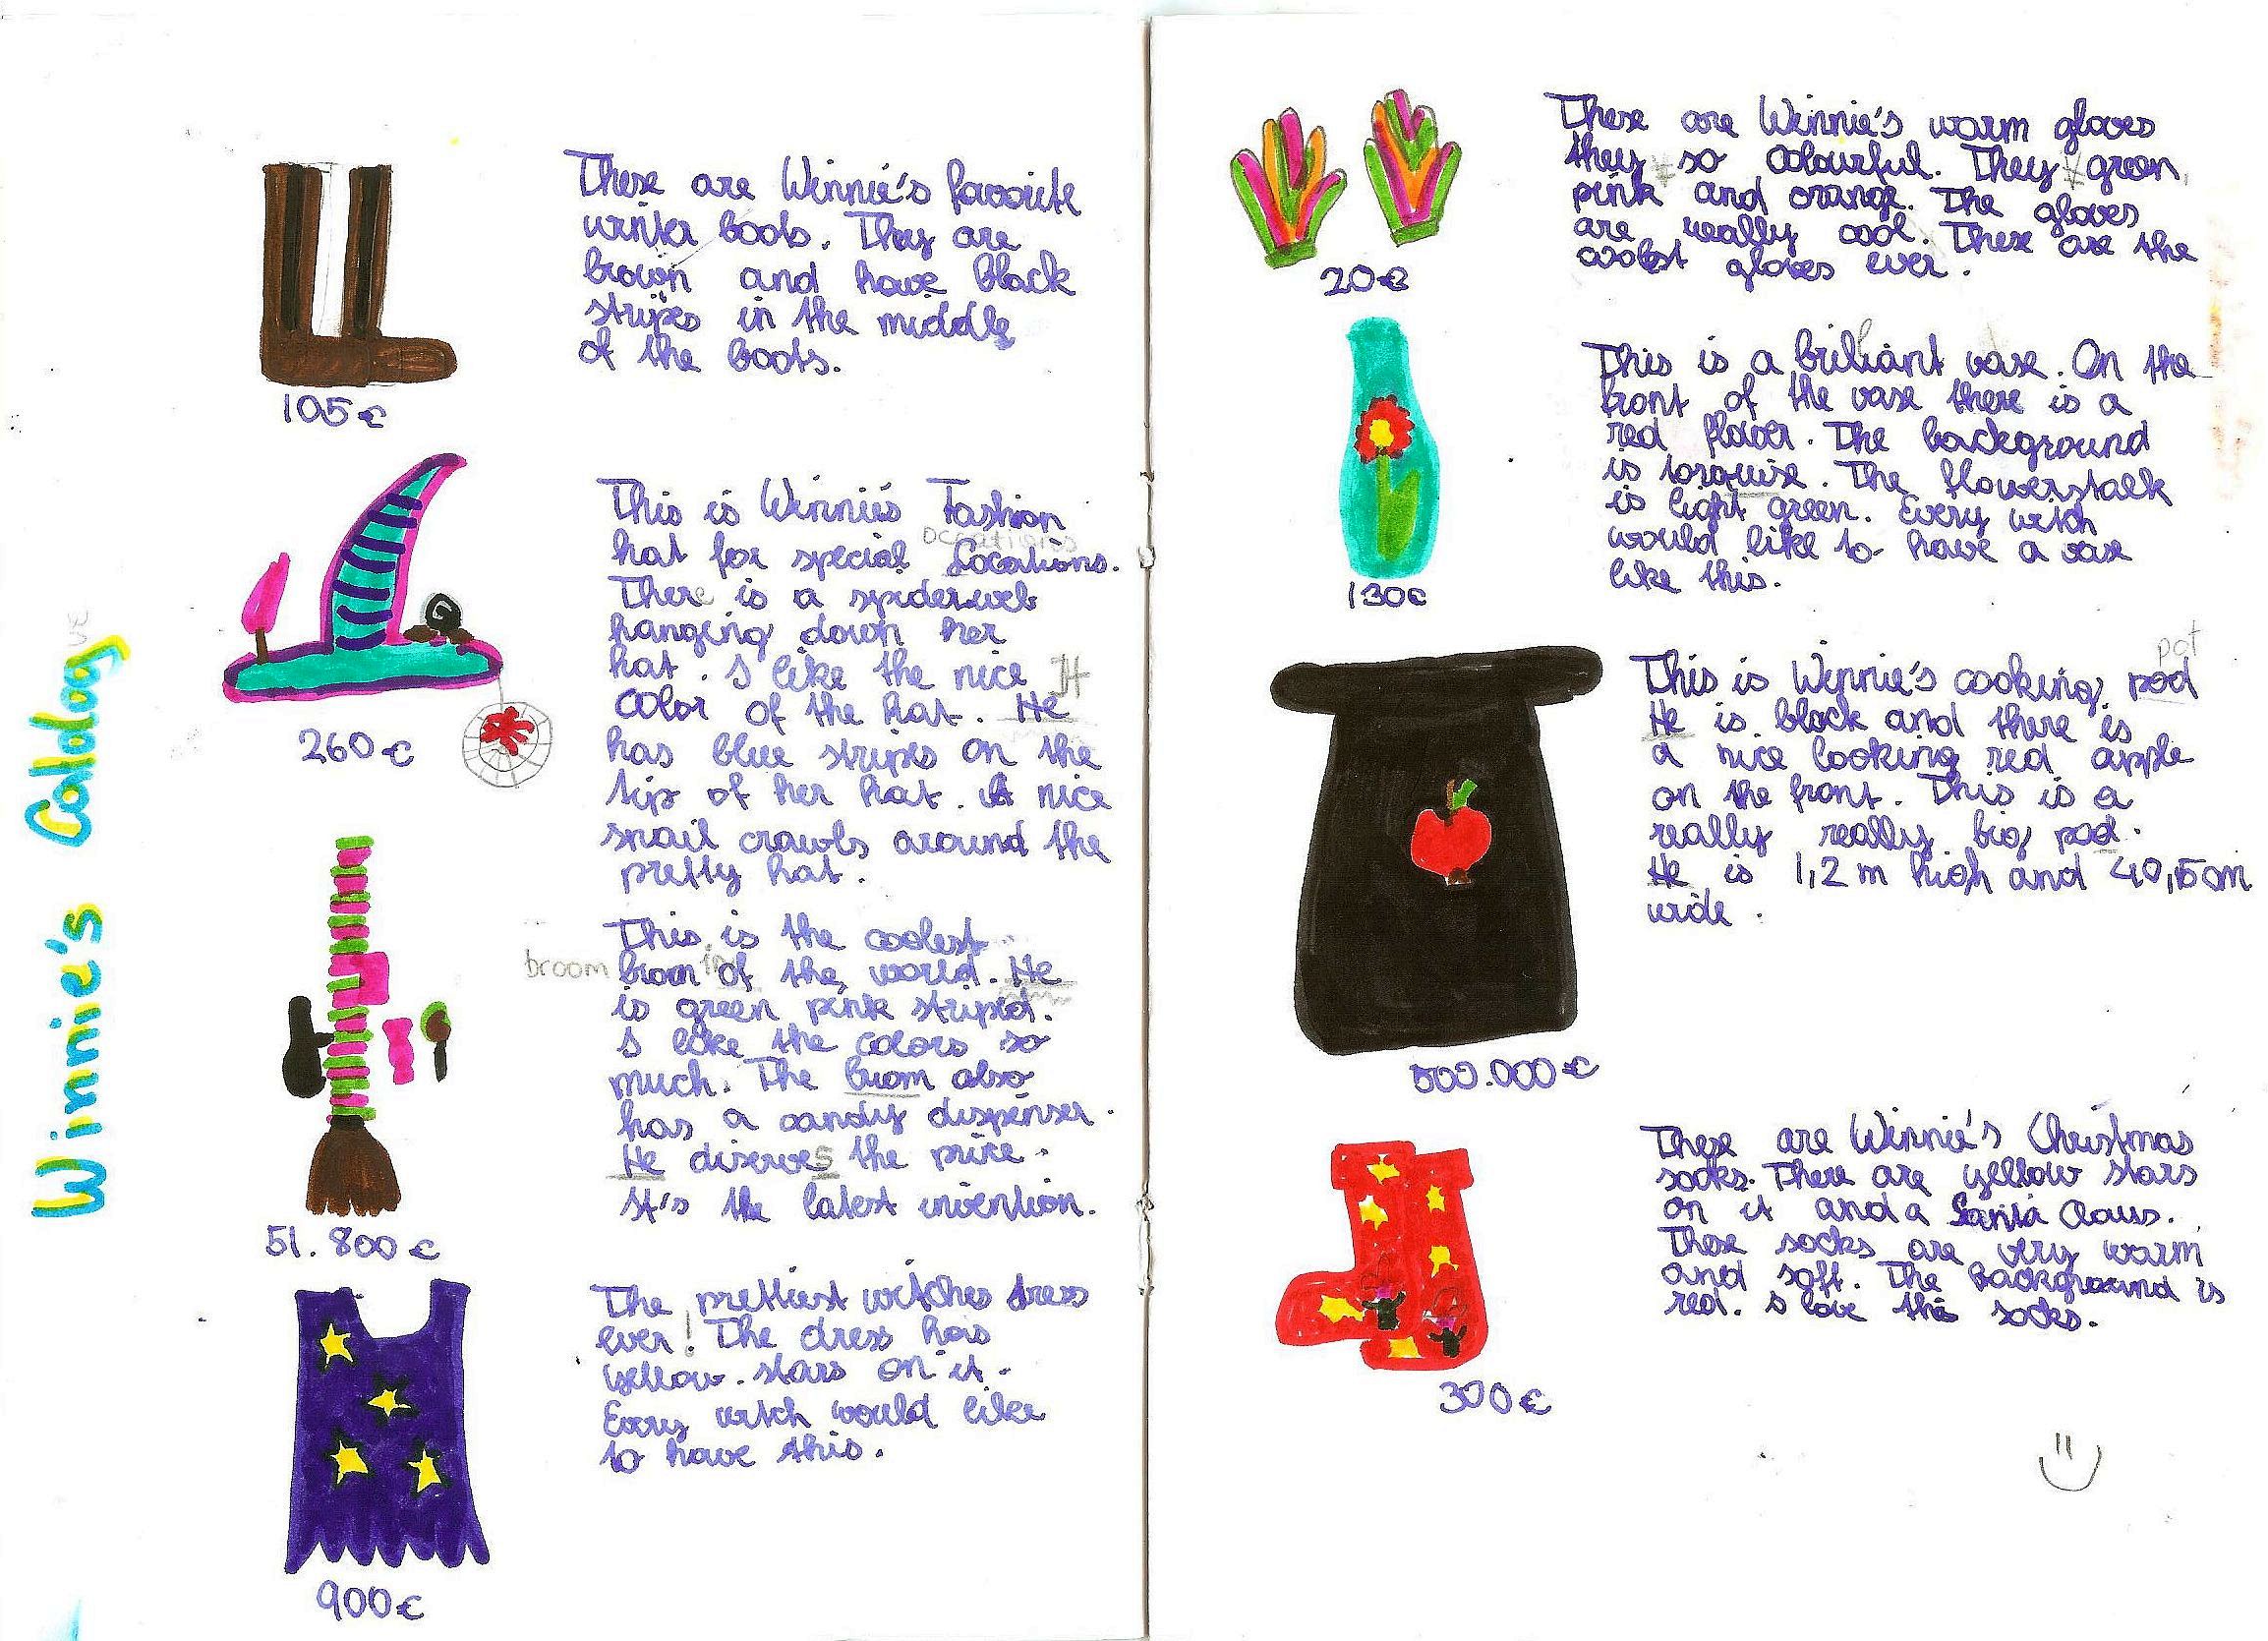 Winnie's Catalog
ve
These are Winnie's favorite
winter boots. They are
brown and have black
stripes in the middle
of the boots.
105€
This is Winnie's Fashion
occations
hat for special Locations.
There is a spiderweb
hanging down her
hat. I like the nice It
color of the hat. He
has blue stripes on the
tip of her hat. A nice
snail crawls around the
pretty hat.
260€
This is the coolest
broom brom in of the world. He
is green pink striped.
I like the colors so
much. The brom also
has a candy dispenser.
He diserves the prize.
It's the latest invention.
51.800€
The prettiest witches dress
ever! The dress has
yellow stars on it.
Every witch would like
to have this.
900€
These are Winnie's warm gloves
they so colourful. They green,
pink and orange. The gloves
are really cool. These are the
coolest gloves ever.
20€
This is a briliant vase. On the
front of the vase there is a
red flower. The background
is torquise. The flowerstalk
is light green. Every witch
would like to have a vase
like this.
130€
pot
This is Winnie's cooking pod
He is black and there is
a nice looking red apple
on the front. This is a
really really big pod.
He is 1,2 m high and 40,15cm
wide.
500.000€
These are Winnie's Christmas
socks. There are yellow stars
on it and a Santa Claus.
These socks are very warm
and soft. The background is
red. I love this socks.
300€